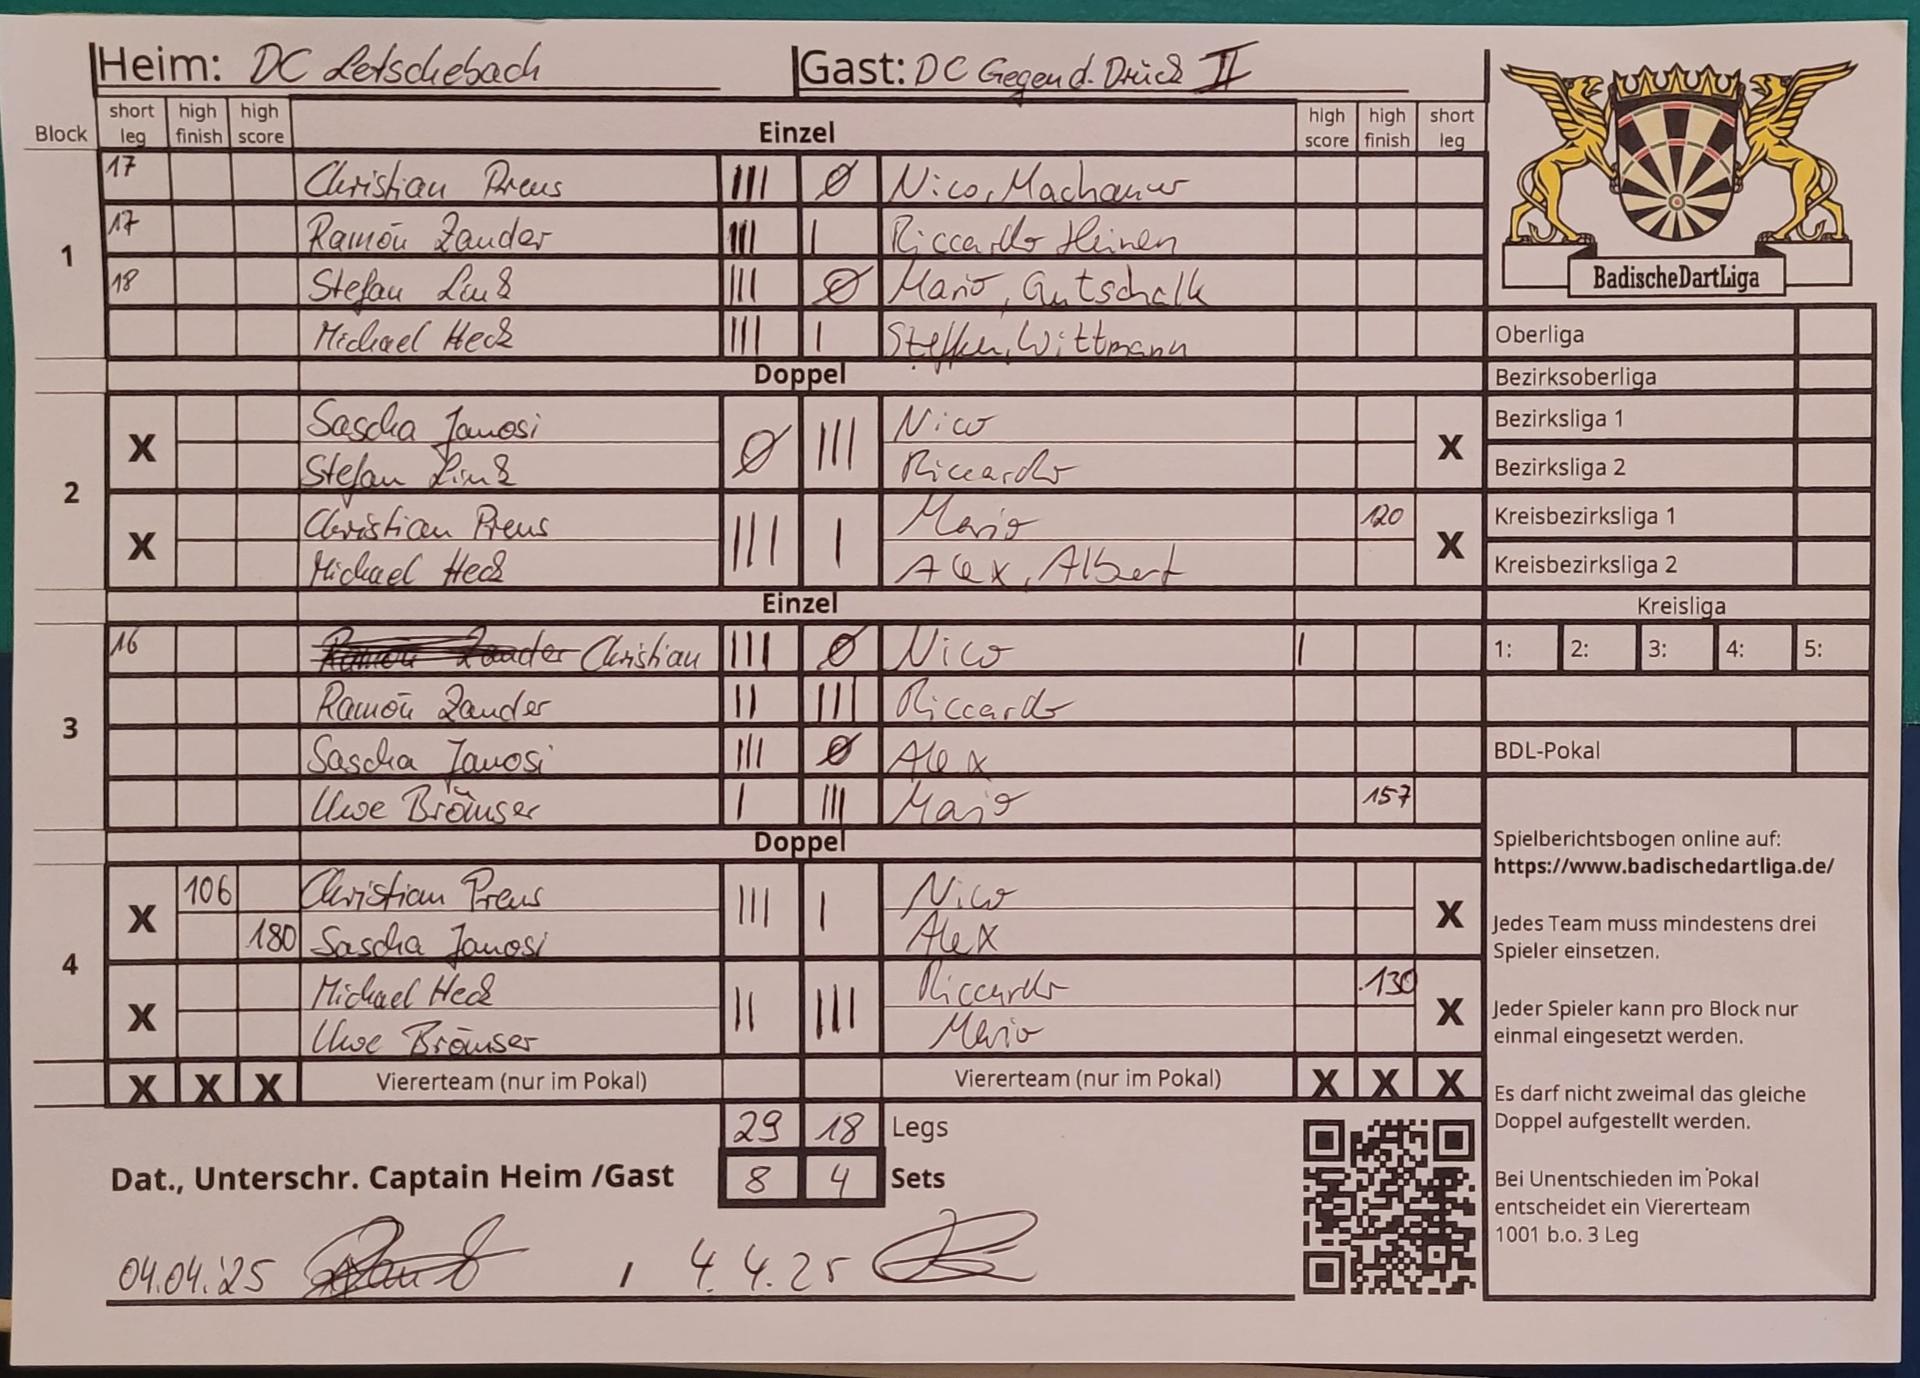 Heim: DC Letschebach Gast: DC Gegen d. Druck II
Block short leg high finish high score Einzel high score high finish short leg
1
17 Christian Preus III Ø Nico, Machauer
17 Ramón Zander III I Riccardo Heinen
18 Stefan Link III Ø Mario, Gutschalk
Michael Heck III I Steffen, Wittmann
Doppel
2
X Sascha Janosi Ø III Nico X
Stefan Link Riccardo
X Christian Preus III I Mario 120 X
Michael Heck Alex, Albert
Einzel
3
16 Ramón Zander Christian III Ø Nico I
Ramón Zander II III Riccardo
Sascha Janosi III Ø Alex
Uwe Brömser I III Mario 157
Doppel
4
X 106 Christian Preus III I Nico X
180 Sascha Janosi Alex
X Michael Heck II III Riccardo 130 X
Uwe Brömser Mario
X X X Viererteam (nur im Pokal) Viererteam (nur im Pokal) X X X
29 18 Legs
8 4 Sets
Dat., Unterschr. Captain Heim /Gast
04.04.'25 , 4.4.25
BadischeDartLiga
Oberliga
Bezirksoberliga
Bezirksliga 1
Bezirksliga 2
Kreisbezirksliga 1
Kreisbezirksliga 2
Kreisliga
1: 2: 3: 4: 5:
BDL-Pokal
Spielberichtsbogen online auf:
https://www.badischedartliga.de/
Jedes Team muss mindestens drei
Spieler einsetzen.
Jeder Spieler kann pro Block nur
einmal eingesetzt werden.
Es darf nicht zweimal das gleiche
Doppel aufgestellt werden.
Bei Unentschieden im Pokal
entscheidet ein Viererteam
1001 b.o. 3 Leg